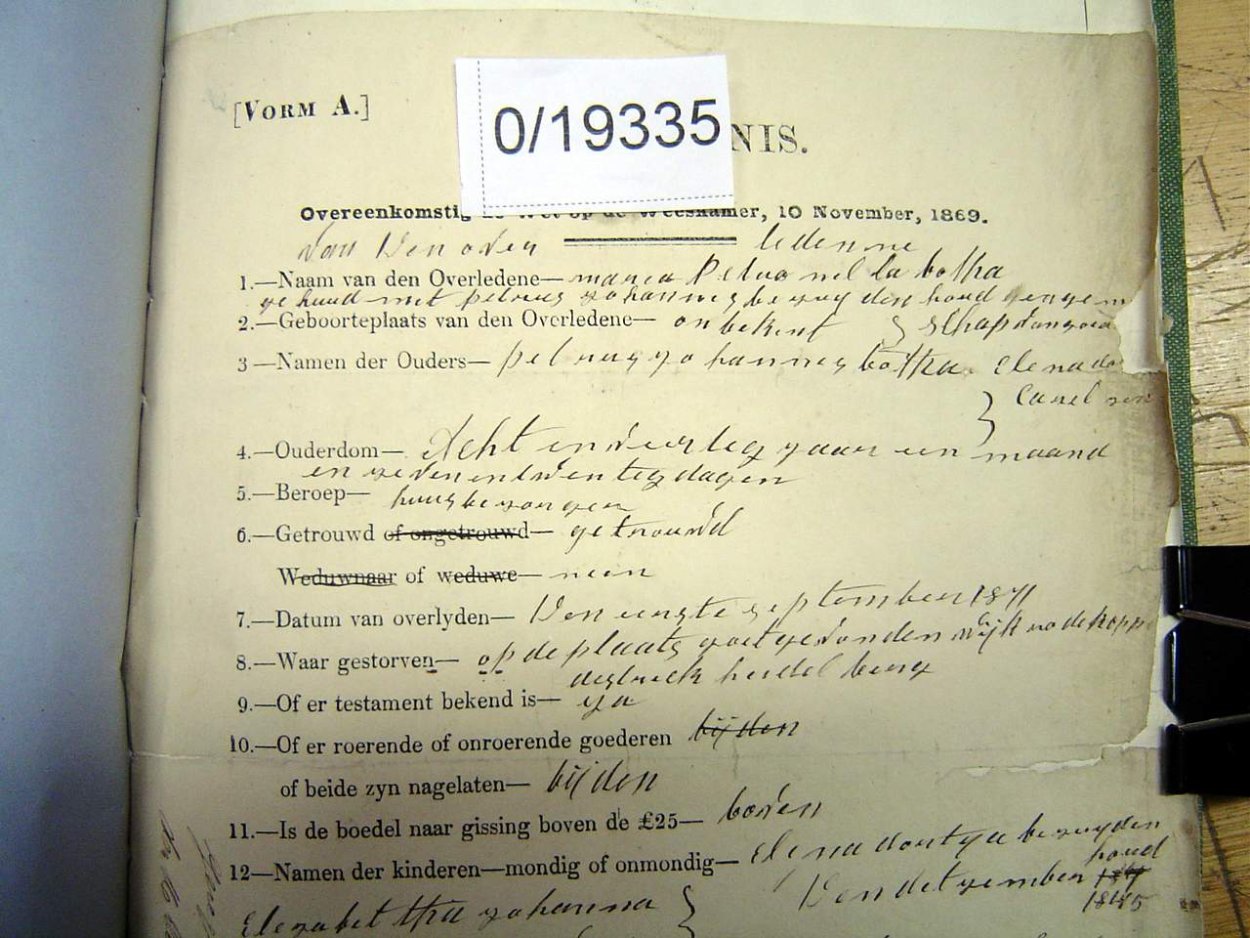 [VORM A.]
0/19335
NIS.
Overeenkomstig de Wet op de Weeskamer, 10 November, 1869.
van den over ledenne
1.—Naam van den Overledene— maria Petronella botha
gehuud met petrus yohannes bezuydenhoud
2.—Geboorteplaats van den Overledene— onbekent
3—Namen der Ouders— petrus yohannes botha Elena
4.—Ouderdom— Acht en veerteg yaar een maand
en zevenentwenteg dagen
5.—Beroep— huusbezorgen
6.—Getrouwd of ongetrouwd— getrouwd
Weduwnaar of weduwe— neen
7.—Datum van overlyden— Den eerste september 1871
8.—Waar gestorven— op de plaats goetgevonden wijk
destreck heidelberg
9.—Of er testament bekend is— ya
10.—Of er roerende of onroerende goederen bijden
of beide zyn nagelaten— bijden
11.—Is de boedel naar gissing boven de £25— boven
12—Namen der kinderen—mondig of onmondig— Elena dortya bezuyden
houd
Den detzember
1845
Elezabettha yohanna